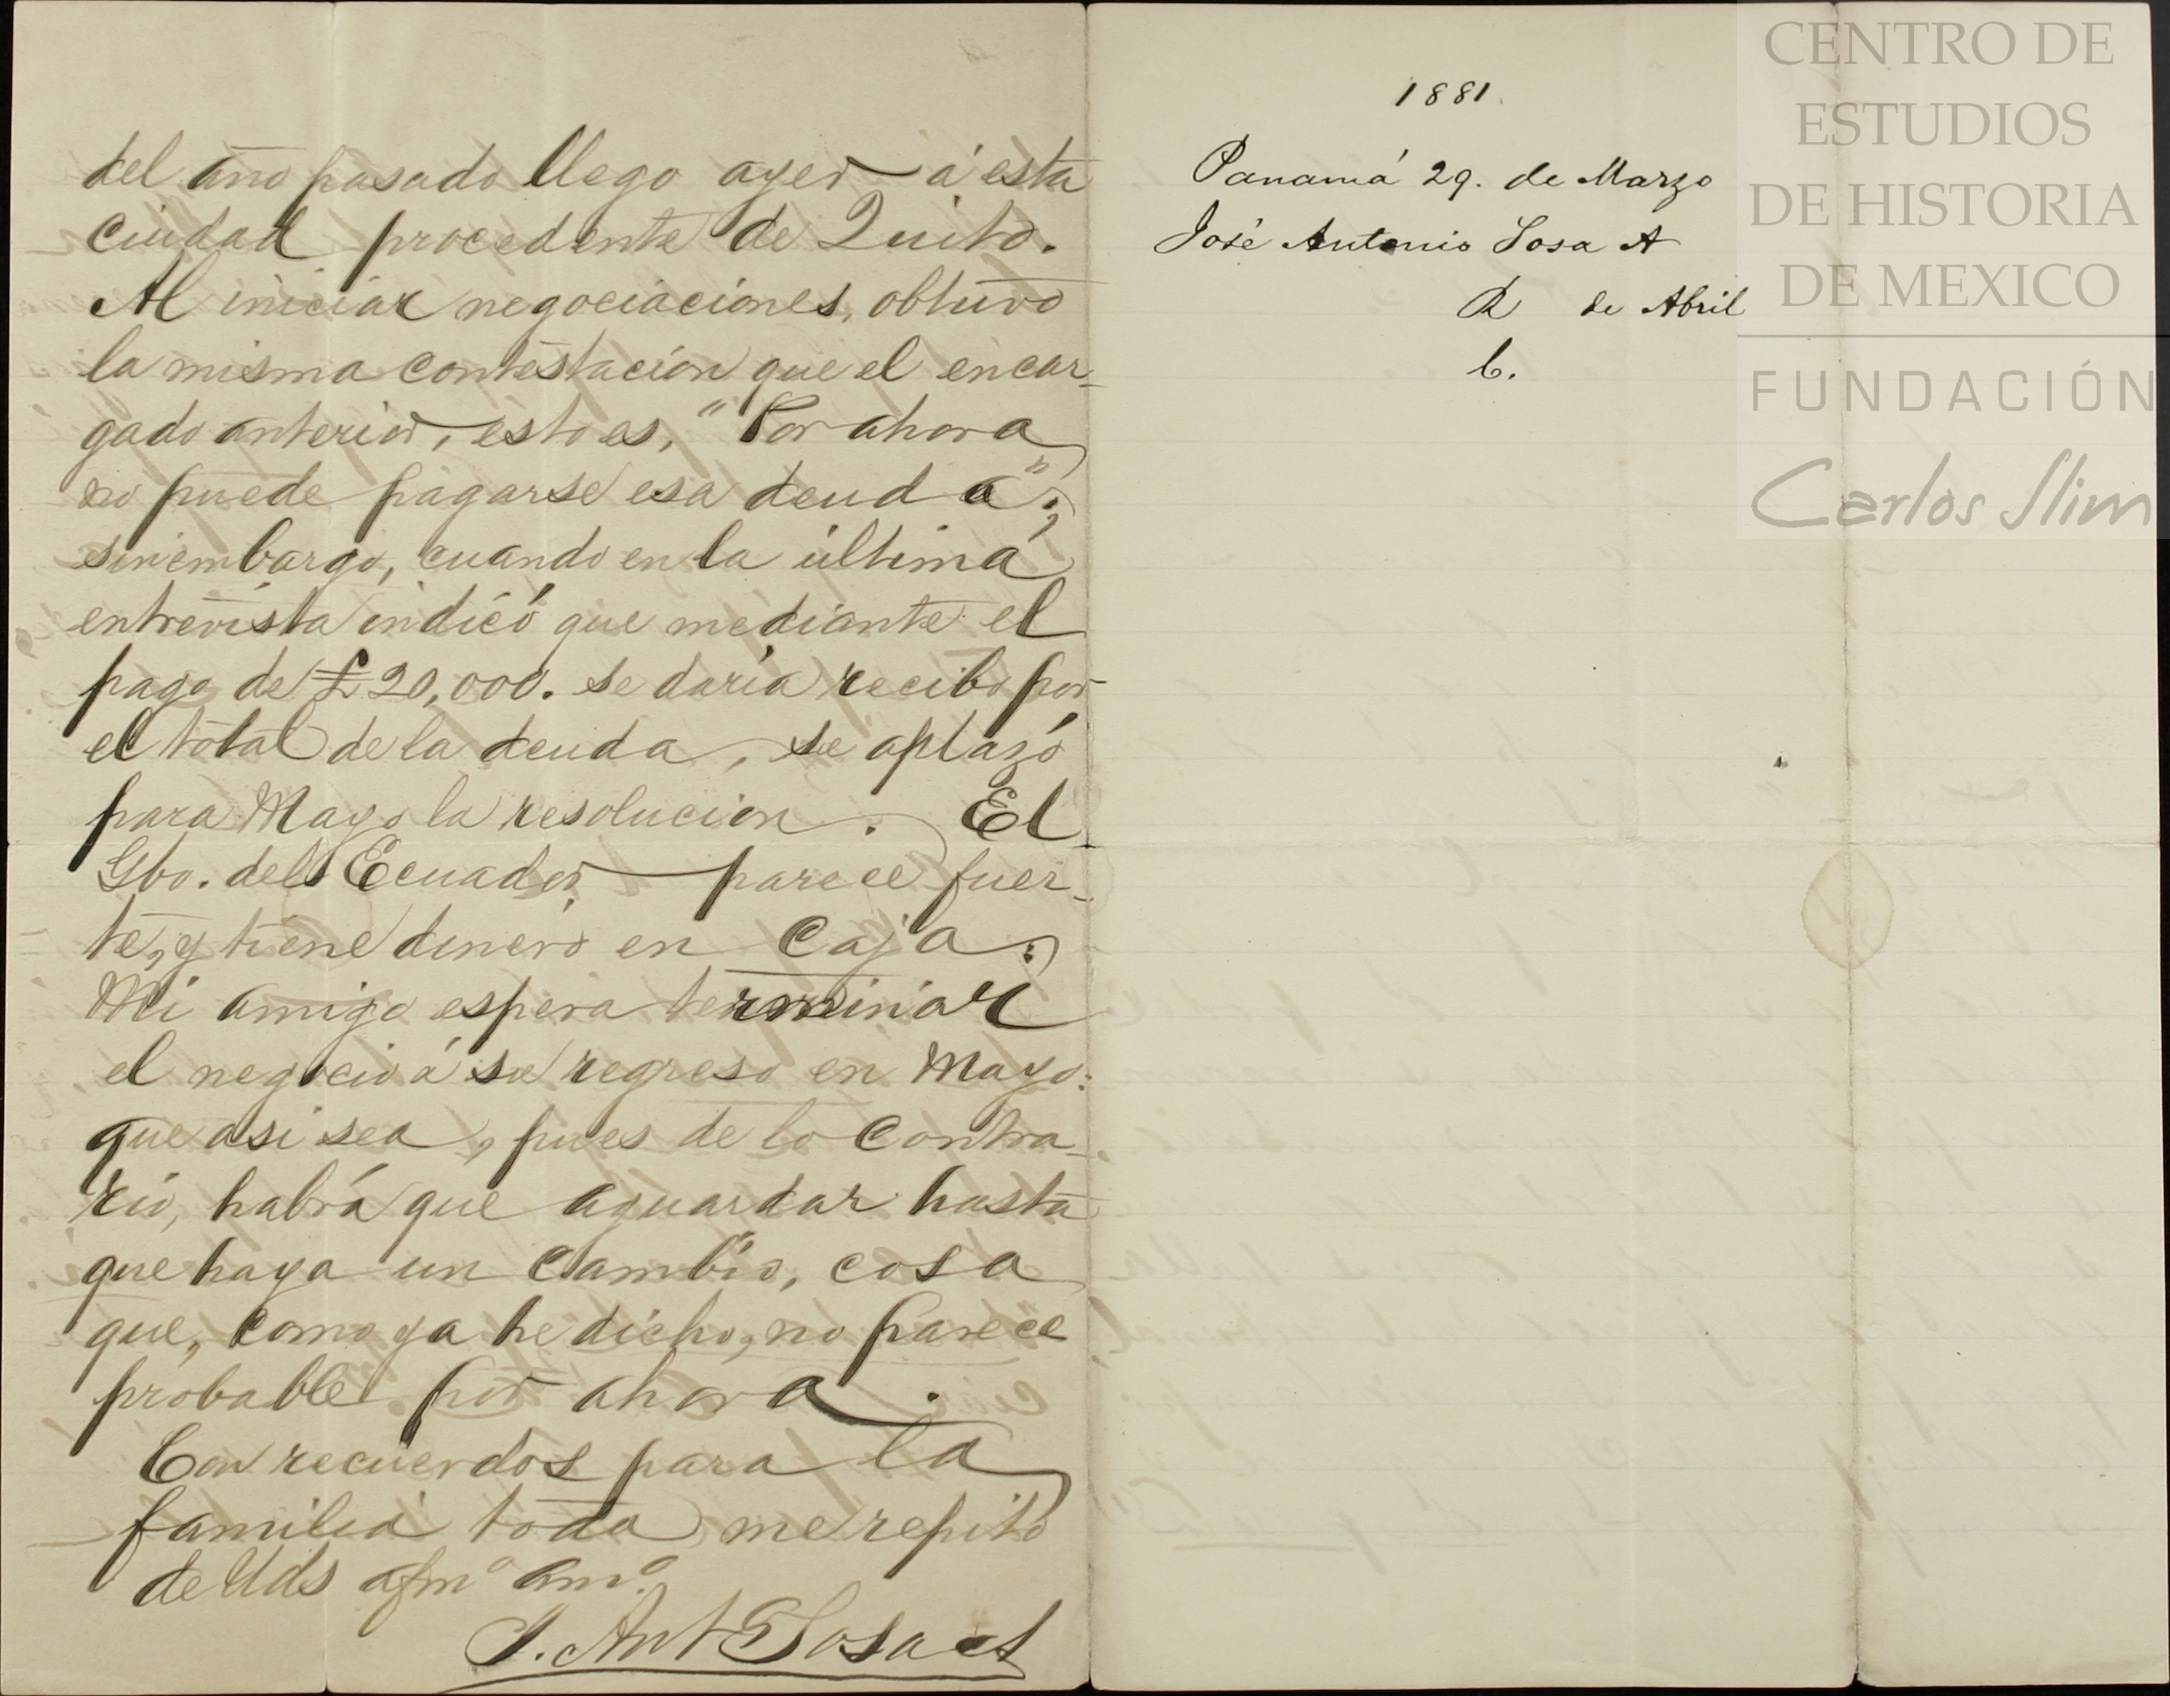 del año pasado llego ayer á esta
ciudad procedente de Quito.
Al iniciar negociaciones, obtuvo
la misma contestacion que el encar-
gado anterior, esto es, "Por ahora
no puede pagarse esa deuda";
sinembargo, cuando en la última
entrevista indicó que mediante el
pago de £20,000. se daría recibo por
el total de la deuda, se aplazó
para Mayo la resolucion. El
Gbo. del Ecuador parece fuer-
te, y tiene dinero en Caja:
Mi amigo espera terminar
el negocio á su regreso en Mayo:
que asi sea, pues de lo contra-
rio, habrá que aguardar hasta
que haya un cambio, cosa
que, como ya he dicho, no parece
probable por ahora.
Con recuerdos para la
familia toda me repito
de Uds afmº amº.
J. Ant Sosa A
1881.
Panamá 29. de Marzo
José Antonio Sosa A
R de Abril
C.
CENTRO DE
ESTUDIOS
DE HISTORIA
DE MEXICO
FUNDACIÓN
Carlos Slim